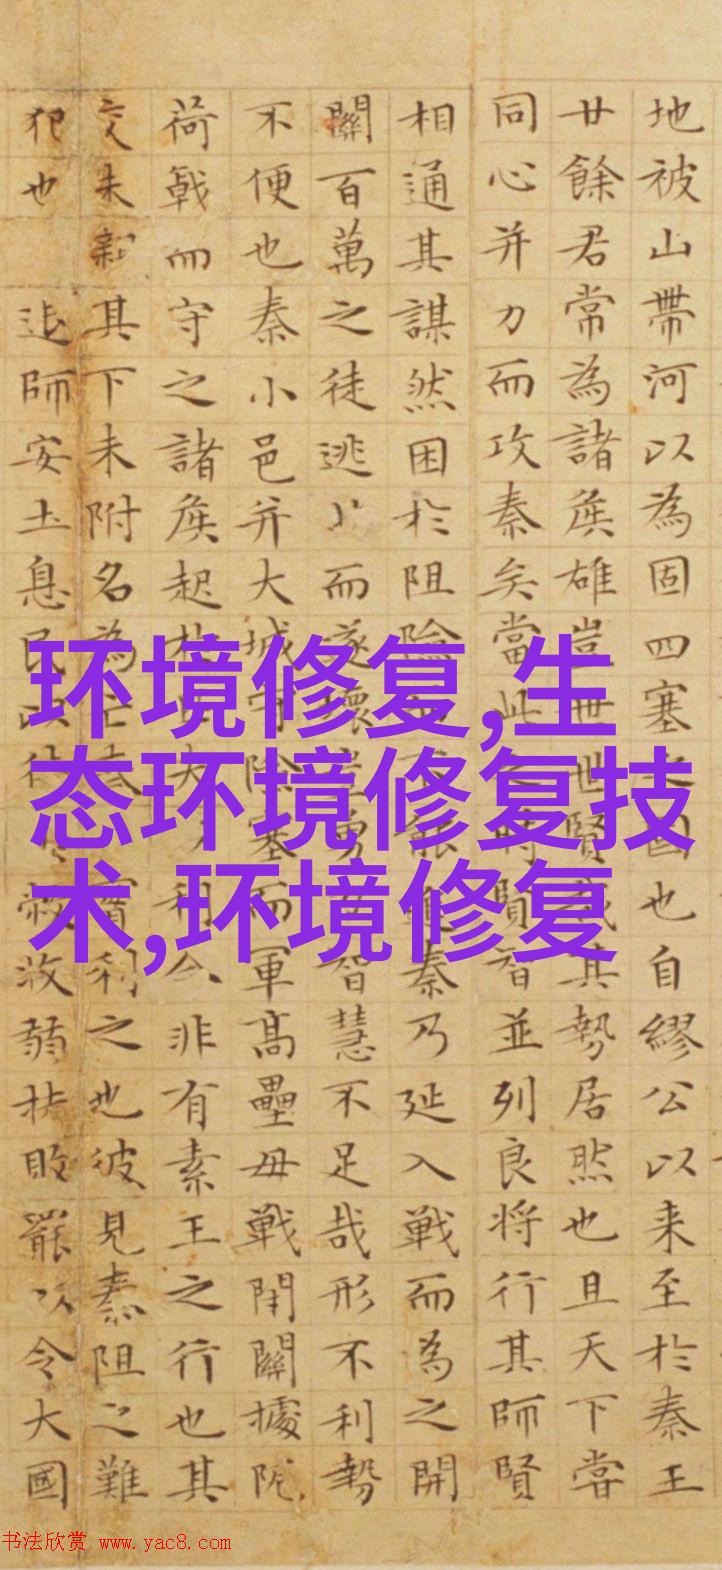 地被山帶河以為固四塞之國也自繆公以来至於秦王
廿餘君常為諸侯雄豈世世賢哉其勢居然也且天下嘗
同心并力而攻秦矣當此時賢智並列良将行其師賢
相通其謀然困於阻險能進秦乃延入戦而為之開
關百萬之徒逃而遂壞豈勇力智慧不足哉形不利勢
不便也秦小邑并大城守險塞而軍高壘毋戦閉關據阨
荷戟而守之諸侯起於夫利合非有素王之行也其
交未親其下未附名為亡秦實利之也彼見秦阻之難
犯也 師安土息民以待收弱扶敗罷以令大國
环境修复,生
态环境修复技
术,环境修复
书法欣赏 www.yac8.com